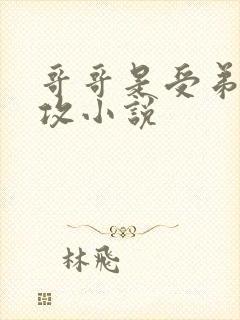 哥哥是受弟
攻小說
林飛